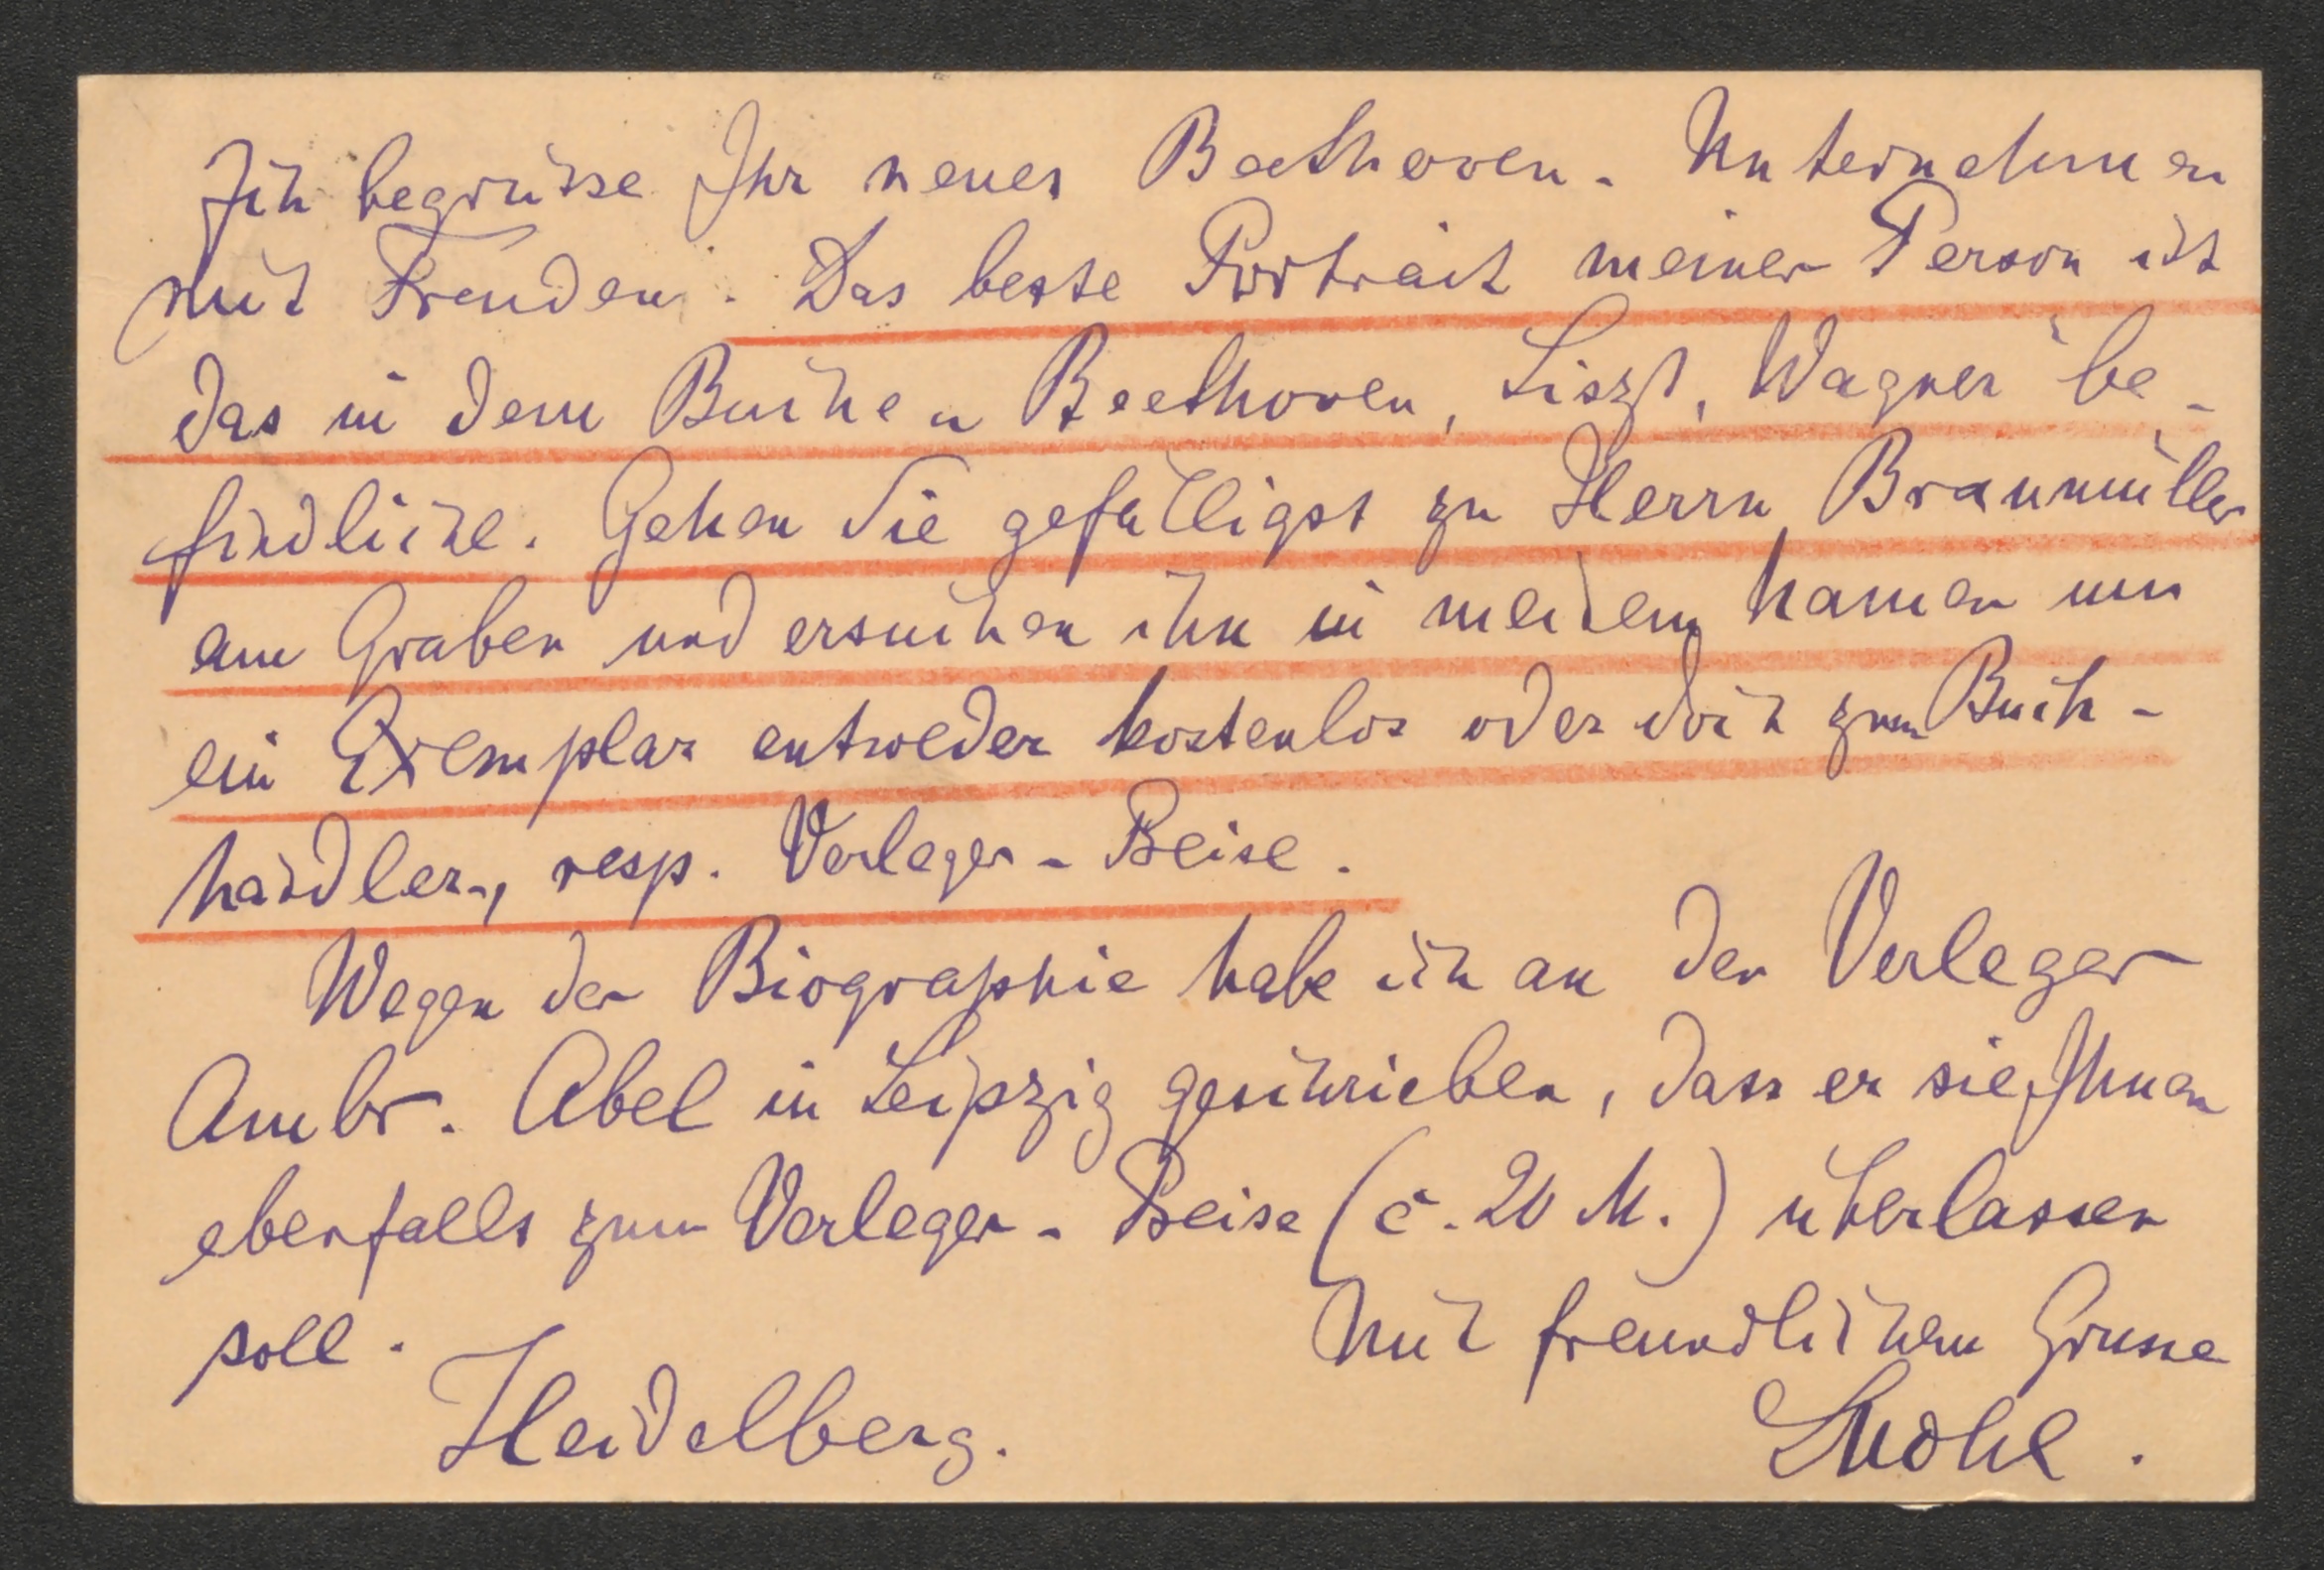 Ich begrüsse Ihr neues Beethoven-Unternehmen
mit Freuden. Das beste Porträit meiner Person ist
das in dem Buche „Beethoven, Liszt, Wagner“ be-
findliche. Gehen Sie gefälligst zu Herrn Braumüller
am Graben und ersuchen ihn in meinem Namen um
ein Exemplar entweder kostenlos oder doch zum Buch-
händler-, resp. Verleger-Preise.
Wegen der Biographie habe ich an den Verleger
Ambr. Abel in Leipzig geschrieben, dass er sie Ihnen
ebenfalls zum Verleger-Preise (c. 20 M.) überlassen
soll.
Mit freundlichem Grusse
Heidelberg.
LNohl.